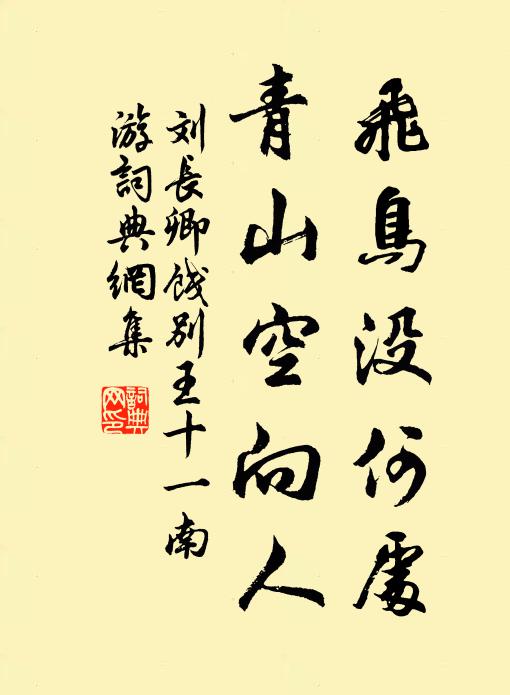 飛鳥没何處
青山空向人
刘長卿餞別王十一南
游詞典網集
詞典
网印